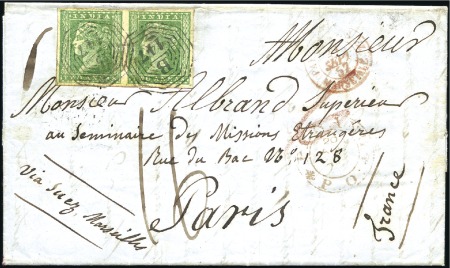 INDIA INDIA
Monsieur
Monsieur Albrand Supérieur
au Seminaire des Missions Etrangères
Rue du Bac No. 128
Paris
Via Suez, Marseilles
France
16
P. O.